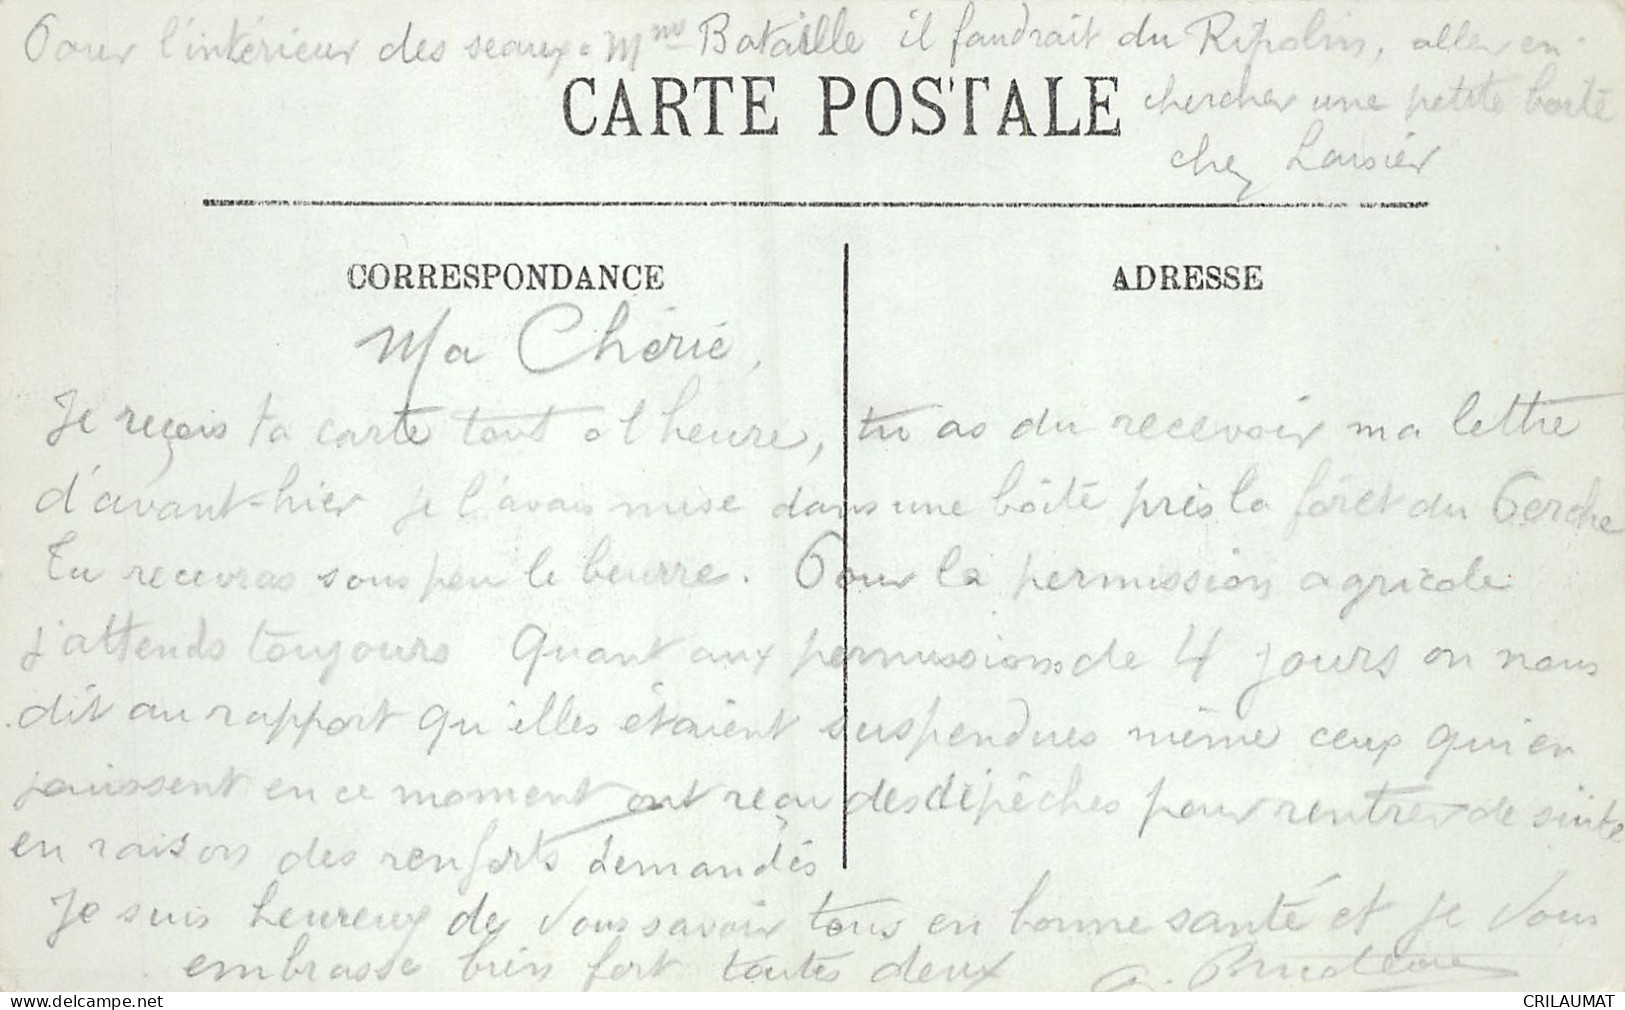 Pour l'intérieur des seaux à Mme Bataille il faudrait du Ripolin, aller en
CARTE POSTALE
chercher une petite boîte
chez
CORRESPONDANCE
ADRESSE
Ma Chérie,
Je reçois ta carte tout à l'heure, tu as du recevoir ma lettre
d'avant-hier je l'avais mise dans une boîte près la forêt du Perche
Tu recevras sous peu le beurre. Pour la permission agricole
j'attends toujours Quant aux permissions de 4 jours on nous
dit au rapport qu'elles étaient suspendues même ceux qui en
jouissent en ce moment ont reçu des dépêches pour rentrer de suite
en raison des renforts demandés
Je suis heureux de vous savoir tous en bonne santé et je vous
embrasse bien fort toutes deux
CRILAUMAT